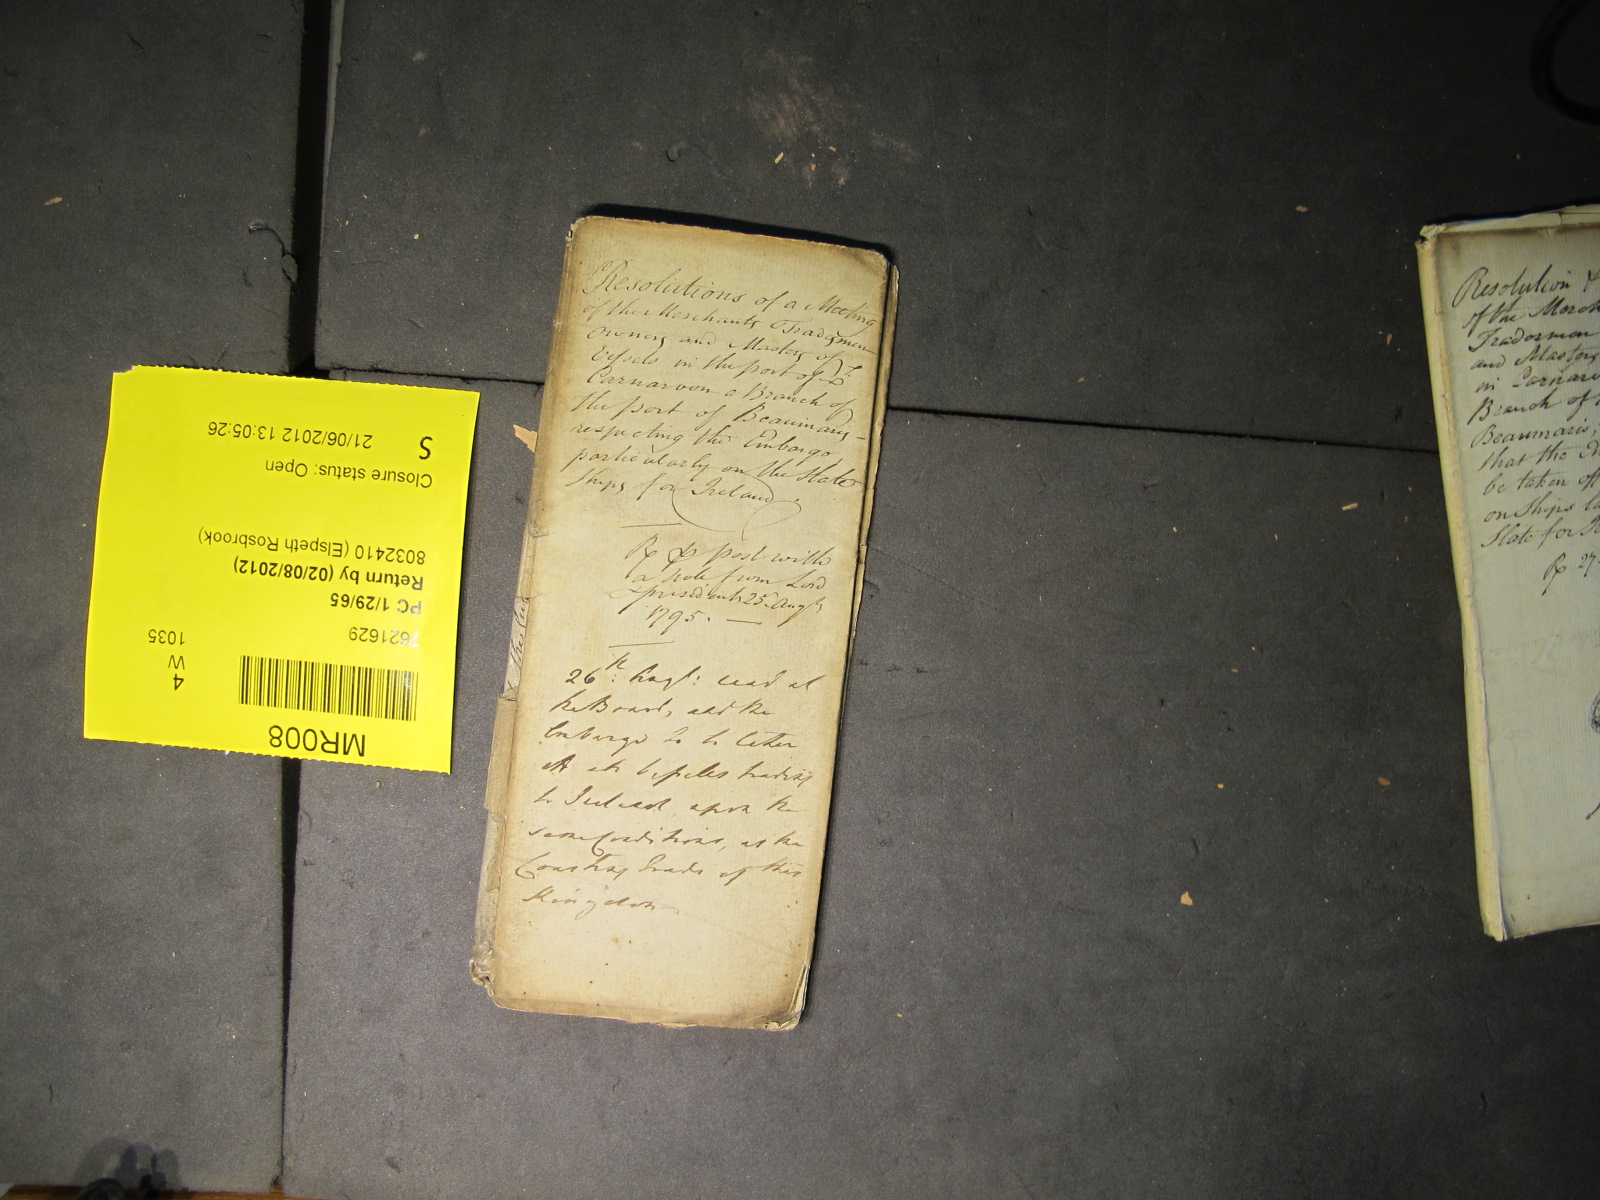 MR008
7621629
4
W
1035
PC 1/29/65
Return by (02/08/2012)
8032410 (Elspeth Rosbrook)
Closure status: Open
21/06/2012 13:05:26
S
Resolutions of a Meeting
of the Merchants Tradesmen
owners and Masters of
Vessels in the port of
Carnarvon a Branch of
the port of Beaumaris -
respecting the Embargo
particularly on the Slate
Ships for Ireland
Rx post with
a note from Lord
president 25 Augt
1795. —
26th Augt: read at
the Board, and the
Embargo to be taken
off all Vessels trading
to Ireland, upon the
same Conditions, as the
Coasting Trade of this
Kingdom
Resolution &
of the Merch
Tradesmen
and Masters
in Carnarv
Branch of
Beaumaris,
that the E
be taken off
on Ships la
Slate for
Rx 27